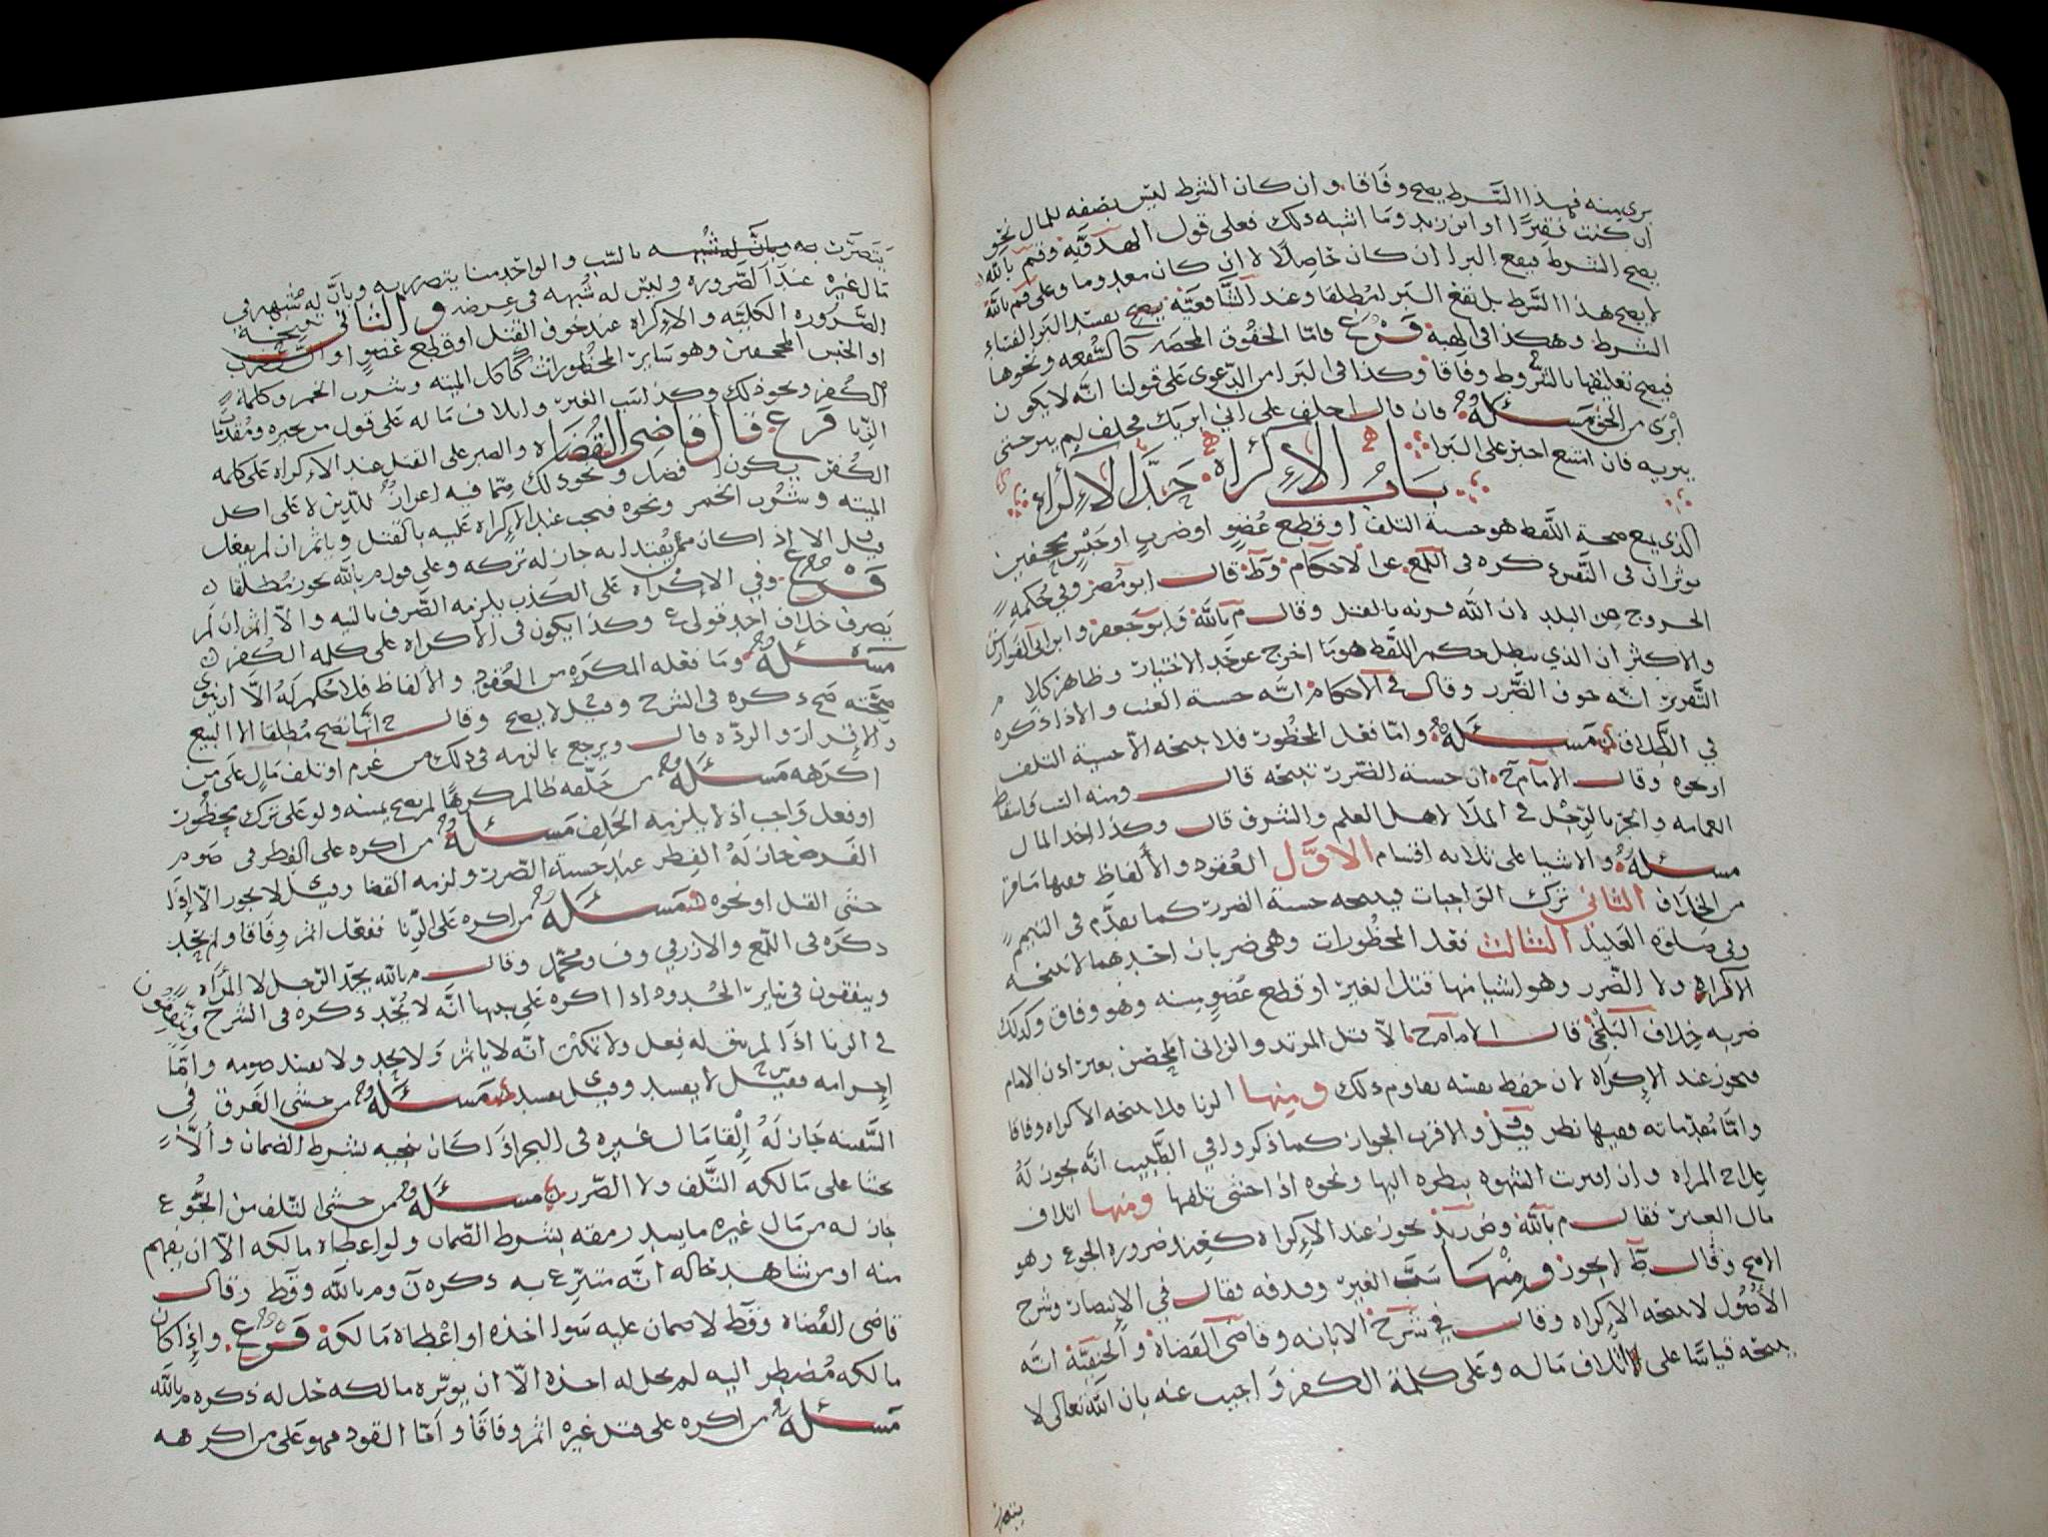 برى منه فهذا الشرط يصح وفاقا وان كان الشرط ليس بصفه للمال نحو
ان كنت فقيرًا او ابن زيد وما اشبه ذلك فعلى قول الهدويّه وقم بالله
يصح الشرط فيقع البرا ان كان حاصلًا لا ان كان معدوما وعلى قم بالله
لا يصح هذا الشرط بل يقع البرا مطلقا وعند الشافعيّه يفسد البرا لفساد
الشرط وهكذا في الهبة فرع فامّا الحقوق المحضه كالشفعه ونحوها
فيصح تعليقها بالشروط وفاقا وكذا في البرا من الدعوى على قولنا انّه لا يكون
ابرى من الحق مسئلة فان قال احلف على اني ابريك فحلف لم يبر حتى
يبريه فان امتنع اجبر على البرا
باب الإكراه حدّ الإكراه
الذي يمنع صحة اللفظ هو خشية التلف او قطع عُضو او ضرب او حبس مجحفين
يوثران في التضرر ذكره في اللمع عن الاحكام وط قال ابو مضر وفي حُكمه
الخروج من البلد لان الله قرنه بالقتل وقال م بالله وابو جعفر وابن ابي الفوارس
والاكثر ان الذي يبطل حكم اللفظ هو ما اخرج عن حدّ الاختيار وظاهر كلام
التحرير انه خوف الضّرر وقال في الاحكام انّه خشية العنت والاذا ذكره
في الطلاق مسئلة وامّا فعل المحظور فلا يبيحه الّا خشية التلف
او نحوه وقال الامام ح ان خشية الضّرر تبيحه قال ومنه السب واسقاط
العمامه والجر بالرّجل في الملا لاهل العلم والشرف قال وكذا اخذ المال
مسئلة والاشيا على ثلاثه اقسام الاوّل العُقود والألفاظ وفيها ما مر
من الخلاف الثاني ترك الواجبات فيبيحه خشية الضرر كما تقدّم في التيمم
وفي صلوة العليل الثالث فعل المحظورات وهي ضربان احدهما لا تبيحه
الاكراه ولا الضّرر وهو اشيا منها قتل الغير او قطع عُضو منه وهو وفاق وكذلك
ضربه خلاف البلخي قال الامام ح الّا قتل المرتد والزاني المحصن بغير اذن الامام
فيجوز عند الإكراه لان حفظ نفسه يقاوم ذلك ومنها الزنا فلا يبيحه الاكراه وفاقا
وامّا مُقدّماته ففيها نظر قيل ف والاقرب الجواز كما ذكروا في الطبيب انّه يجوز لهُ
علاج المراه وان اقترنت الشهوه بنظره اليها ونحوه اذا خشي تلفها ومنها اتلاف
مال الغير فقال م بالله وض زيد يجوز عند الإكراه كعند ضروره الجوع وهو
الاصح وقال ط لا يجوز ومنها سَبّ الغير وقذفه فقال في الإنتصار وشرح
الأصُول لا يبيحه الإكراه وقال في شرح الابانه وقاضي القضاة والحنفيّة انّه
يبيحه قياسًا على اتلاف ماله وعلى كلمة الكفر وأجيب عنه بان الله تعالى لا
يتضرر
يتضرّر به وبانّ له شُبهه بالسّب والواحد منا يتضرر به وبانّ له شبهه في
مال غيره عند الضّروره وليس له شُبهه في عرضه والثاني يبيحه
الضّروره الكليّه والإكراه عند خوف القتل او قطع عُضو او الضّرب
او الحبس المجحفين وهو ساير المحظورات كأكل الميته وشرب الخمر وكلمة
الكُفر ونحو ذلك وكذا سَب الغير واتلاف ماله على قول من يجيزه ومُقدّمات
الزنا فرع قال قاضي القُضَاة والصبر على القتل عند الإكراه على كلمه
الكُفر يكون افضل ونحو ذلك ممّا فيه اعزازٌ للدّين لا على اكل
الميته وشُرب الخمر ونحوه فيجب عند الإكراه عليه بالقتل وياثم ان لم يفعل
قيل الا اذا كان ممن يُقتدا به جاز له تركه وعلى قول م بالله يجوز مُطلقا
فرع وفي الإكراه على الكذب يلزمه الصّرف بالنيه والّا اثم ان لم
يصرف خلاف احد قولي ع وكذا يكون في الإكراه على كلمه الكُفر
مسئلة وما فعله المكره من العُقود والألفاظ فلا حُكم لهُ الّا ان ينوي
صحّته صح ذكره في الشرح وقيل لا يصح وقال ح انها تصح مُطلقا الا البيع
والإقرار والردّه قال ويرجع بما لزمه في ذلك من غرم او تلف مالٍ على من
اكرهه مسئلة من حلّفه ظالم كرهًا لم تصح يمينه ولو على ترك محظُور
او فعل واجب اذ لا يلزمه الحلف مسئلة من اكره على الفطر في صوم
الفرض جاز لهُ الفطر عند خشية الضّرر ولزمه القضا وقيل لا يجوز الّا إذا
خشي القتل او نحوه مسئلة من اكره على الزنا ففعل اثم وفاقا ولم يُحد
ذكره في اللمع والازرقي وف ومحمد وقال م بالله يُحدّ الرّجل لا المرأه ويتفقون
في ساير الحُدود اذا اكره على سببها انّه لا يُحد ذكره في الشرح ويتفقون
في الزنا اذا لم يبق له فعل ولا تمكّنت انّه لا ياثم ولا يحد ولا يفسد صومه وامّا
إحرامه فقيل ح لا يفسد وقيل ي يفسد مسئلة من خشي الغرق في
السّفينه جاز لهُ إلقا مال غيره في البحر اذا كان ينجيه بشرط الضمان وألّا
يخشا على مالكه التّلف ولا الضّرر مسئلة من خشي التلف من الجُوع
جاز له من مال غيره ما يسد رمقه بشرط الضّمان ولو اعطاه مالكه الّا ان يفهم
منه او من شاهد حاله انّه متبرّع به ذكره ن وم بالله وقط وقال
قاضي القُضاه وقط لا ضمان عليه سوا اخذه او اعطاه مالكه فرع وإذا كان
مالكه مُضطر اليه لم يحل له اخذه الّا ان يوثره مالكه حل له ذكره م بالله
مسئلة من اكره على قتل غيره اثم وفاقًا وأمّا القود فهو على من اكرهه